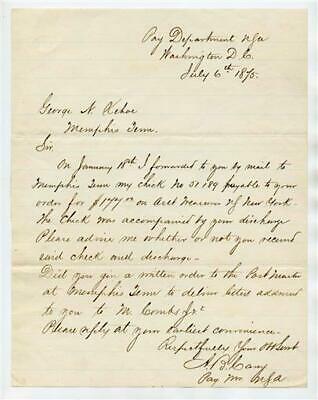 Pay Department USA
Washington D.C.
July 6th 1875.
George N. Kehoe
Memphis Tenn
Sir.
On January 18th I forwarded to you by mail to
Memphis Tenn my check No 31 189 payable to your
order for on Asst Treasurer of New York.
The check was accompanied by your discharge
Please advise me whether or not you received
said check and discharge.
Did you give a written order to the Post Master
at Memphis Tenn to deliver letters addressed
to you to M. Combs Jr
Please reply at your earliest convenience.
Respectfully Your Obt Servt
Pay Mr USA